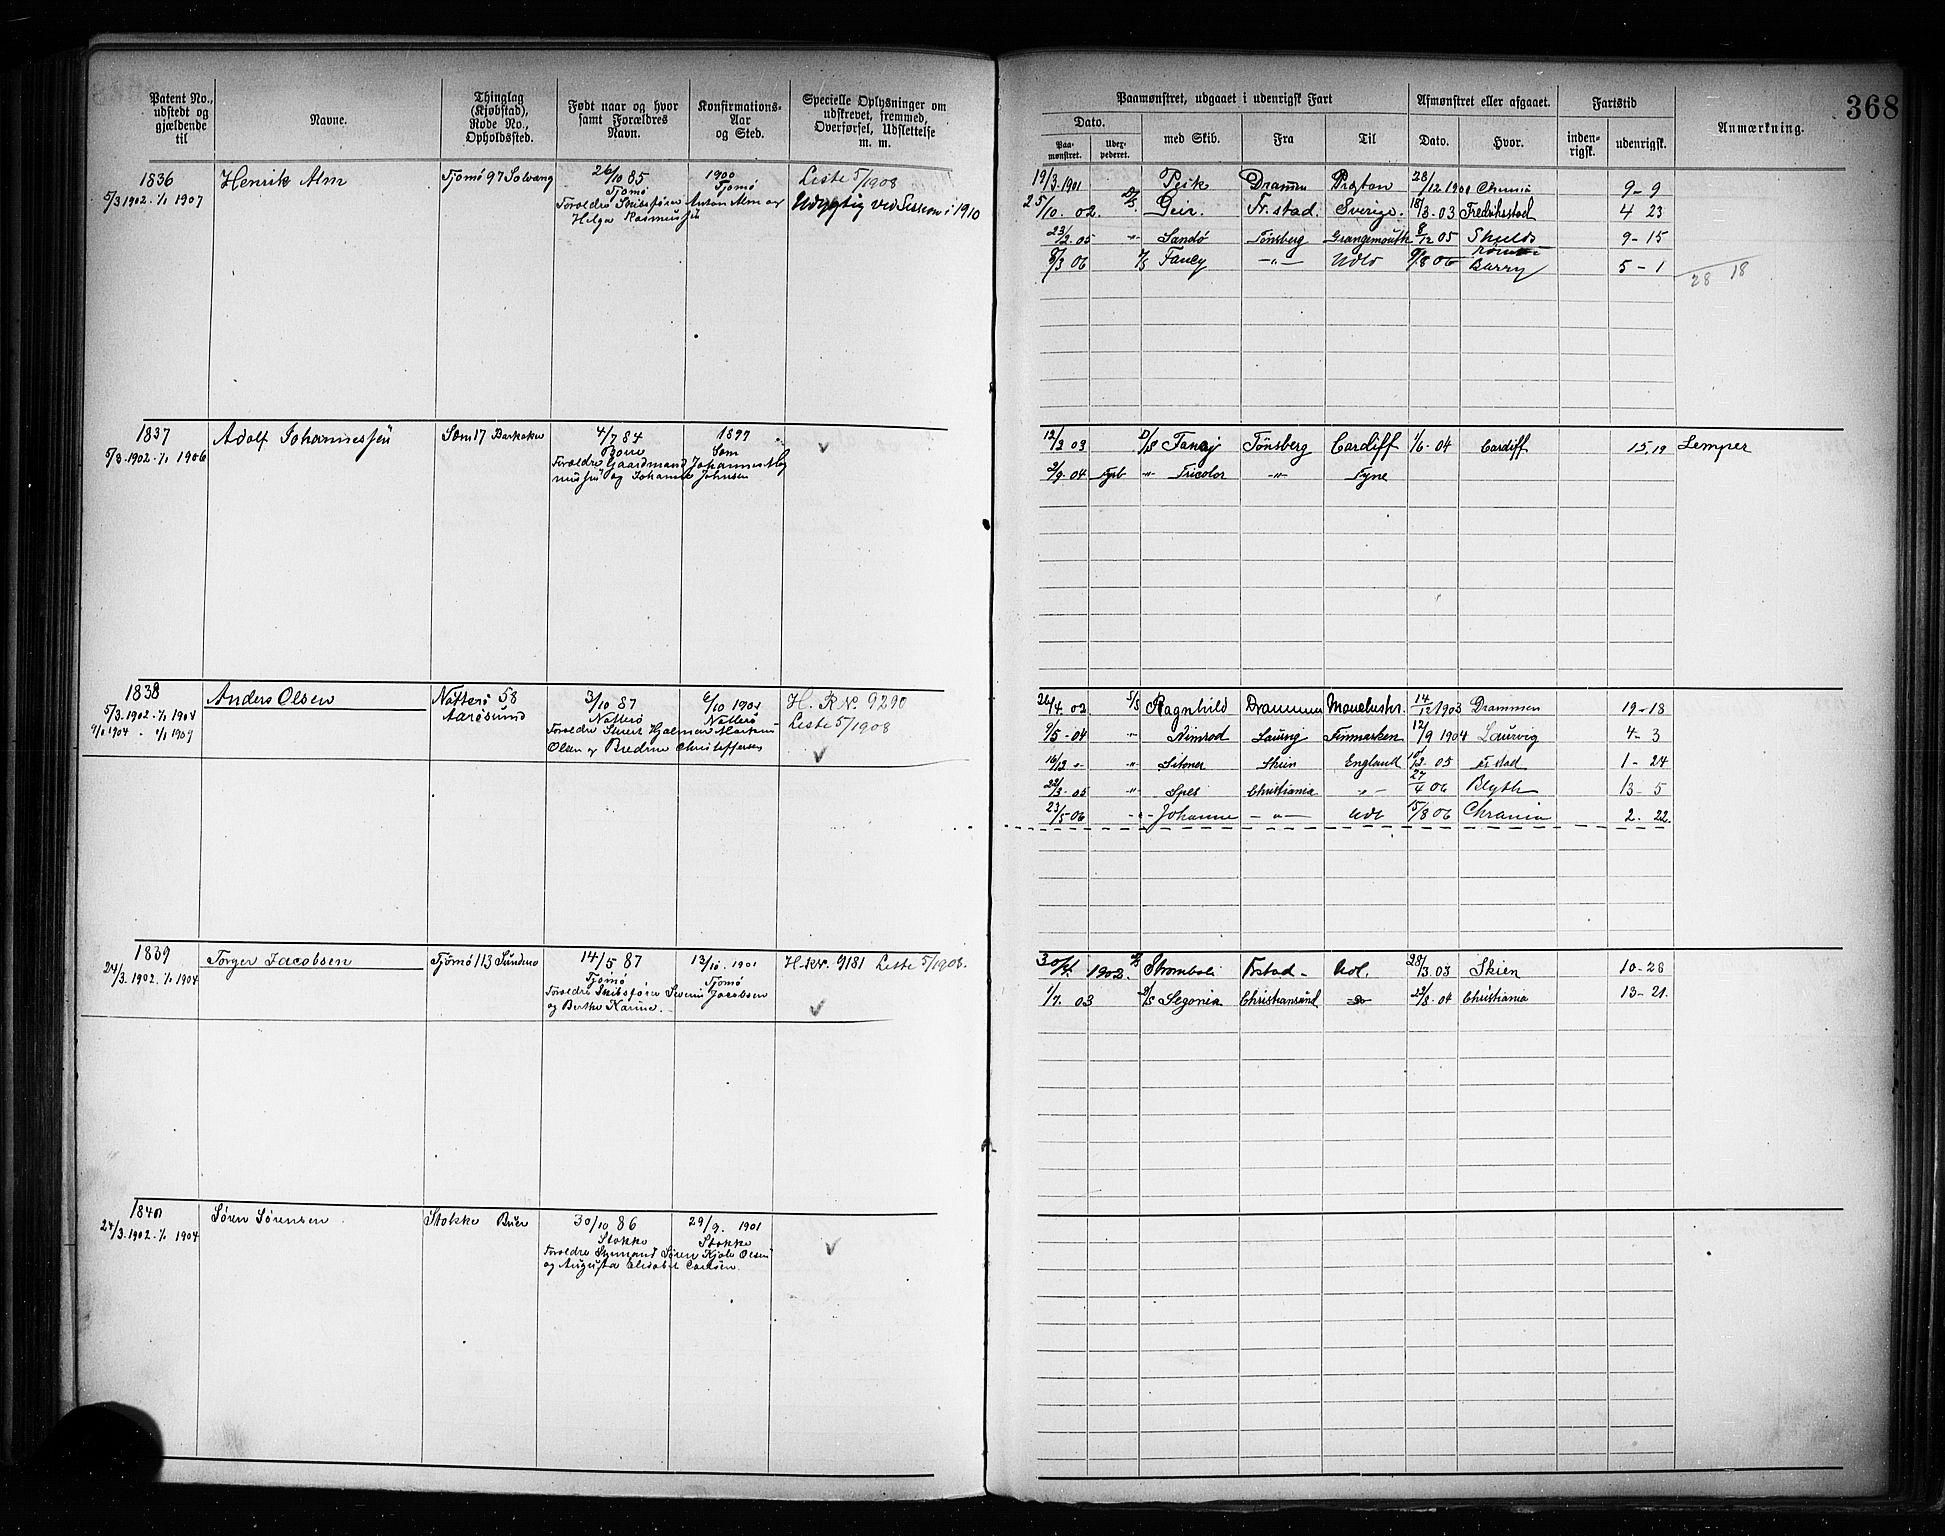 368
Patent No., udstedt og gjældende til
Navne.
Thinglag (Kjøbstad), Rode No., Opholdssted.
Født naar og hvor samt Forældres Navn.
Konfirmations-Aar og Sted.
Specielle Oplysninger om udskrevet, fremmed, Overførsel, Udslettelse m. m.
Paamønstret, udgaaet i udenrigsk Fart
Afmønstret eller afgaaet.
Fartstid
Anmærkning.
Dato.
Paa-mønstret.
med Skib.
Fra
Til
Dato.
Hvor.
inden-rigsk.
udenrigsk.
1836
5/3 1902 - 1/1 1907
Henrik Alm
Tjømø 97 Solvang
26/10 85
Tjømø
Forældre Skibsfører Anton Alm og
Helga Rasmussen
1900
Tjømø
Liste 5/1908
Udygtig ved Session i 1910
19/3 1901 Dramn 28/12 1901 9-9
25/10 02. D/S Geir. Fr.stad. Sverige. 18/3-03 Fredrikstad 4 23
23/2 05 -"- Sandø Tønsberg Grangemouth 8/12 05 Shields 9-15
8/3 06 Fancy -"- Udld Barry 5-1
28 18
1837
5/3-1902-1/1 1906
Adolf Johannessen
Sem 17 Barkaker
4/7 84
Forældre Gaardmand Johannes
og Johanne Johnsen
1899
Sem
12/2 03 D/S Tønsberg Cardiff 1/6-04 Cardiff 15.19 Lemper
2/9-04 -"- Tricolor -"- Tyne
1838
5/3-1902-1/1 1904
1/1 1904 - 1/1 1909
Anders Olsen
Nøtterø 58
Aarøsund
3/10 87
Nøtterø
Forældre Hjalmar Markus
Olsen og Christoffersen
6/10 1901
Nøtterø
H. R. Nr. 9290
Liste 5/1908
26/4. 02 S/S Ragnhild Drammen Manchester. 14/12 1903 Drammen 19-18
9/5-04 -"- Nimrod Laurvig Finmarken 12/9 1904 Laurvig 4-3
16/12 -"- -"- Skien England 05 Frstad 1-24
22/3-05 -"- Spes Christiania -"- 27/4 06 Blyth 13-5
23/5-06 -"- Johanne -"- Udl 15/8 06 Chrania 2-22.
1839
24/3-1902-1/1 1904
Torger Jacobsen
Tjømø 113 Sundene
14/5 87
Tjømø
Forældre Skibsfører Severin Jacobsen
og Berthe Karine.
13/10. 1901
Tjømø
H.R.Nr. 9181 Liste 5/1908.
30/4. 1902. Stromboli Frstad - Udl. 28/3-03 Skien 10-28
1/7. 03 D/S Segonia Christiansund do 22/8-04 Christiania 13-21.
1840
24/3-1902-1/1 1904
Søren Sørensen
Stokke
30/10 86
Stokke
Forældre Sømand Søren Olsen
og Augusta Elisabet
29/9. 1901
Stokke